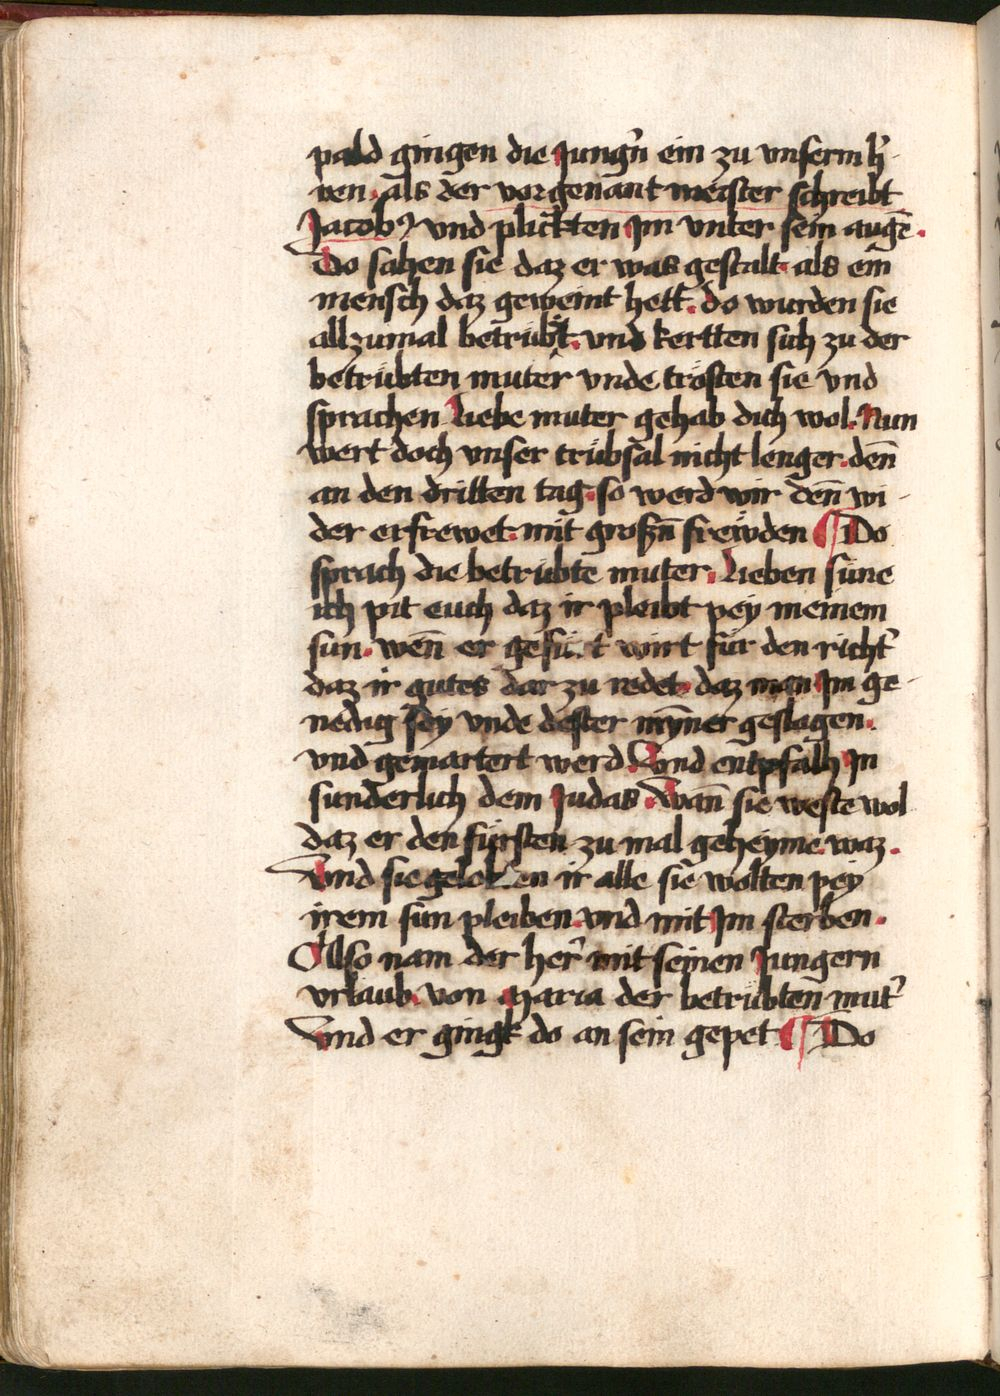 pald gingen die Jungn̄ ein zu vnserm h̄
ren. als der vorgenant meister schreibt
Jacobꝰ vnd plickten Jm vnter sein augē.
Do sahen sie daz er was gestalt. als ein
mensch daz geweint hett. do wurden sie
allzumal betrubt. vnd kertten sich zu der
betrübten muter vnde trösten sie vnd
sprachen Liebe muter gehab dich wol. Nun
wert doch vnser trübsal nicht lenger. den̄
an den dritten tag. so werd wir den̄ wi-
der erfrewet. mit großn̄ frewden ¶ Do
sprach die betrübte muter. Lieben süne
ich pit euch daz ir pleibt pey meinem
sun. wen̄ er gefürt wirt für den richt̓
daz ir gutes dar zu redet. daz man Jm ge-
nedig sey vnde dester mȳner geslagen.
vnd gemartert werd. Vnd entpfalh Jn
sunderlich dem Judas. wan̄ sie weste wol
daz er den fürsten zu mal geheyme waz.
Vnd sie gelobten ir alle sie wolten pey
irem sun pleiben. vnd mit Jm sterben.
Also nam der her̄ mit seinen Jungern
vrlaub. von Maria der betrübten mut̓
Vnd er gingk do an sein gepet ¶ Do